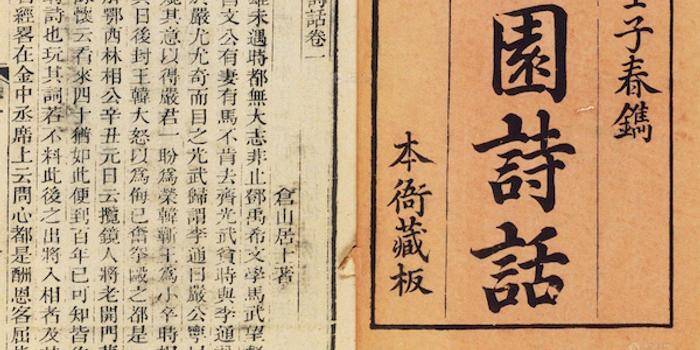 子春鐫
園詩話
本衙藏板
詩話卷一
倉山居士著
雄未遇時都無大志非止鄧禹希文學馬武望督
晉文公有妻有馬不肯去齊光武貧時與李通
於嚴尤尤奇而目之光武歸謂李通曰嚴公寧
其意以得嚴君一盼為榮韓蘄王為小卒時相
其日後封王韓大怒以為侮已奮拳毆之都是
解鄂西林相公辛丑元日云攬鏡人將老開門
懷云看來四十猶如此便到百年已可知皆
詩也玩其詞若不料此後之出將入相者及
經畧在金中丞席上云問心都是酬恩客屈